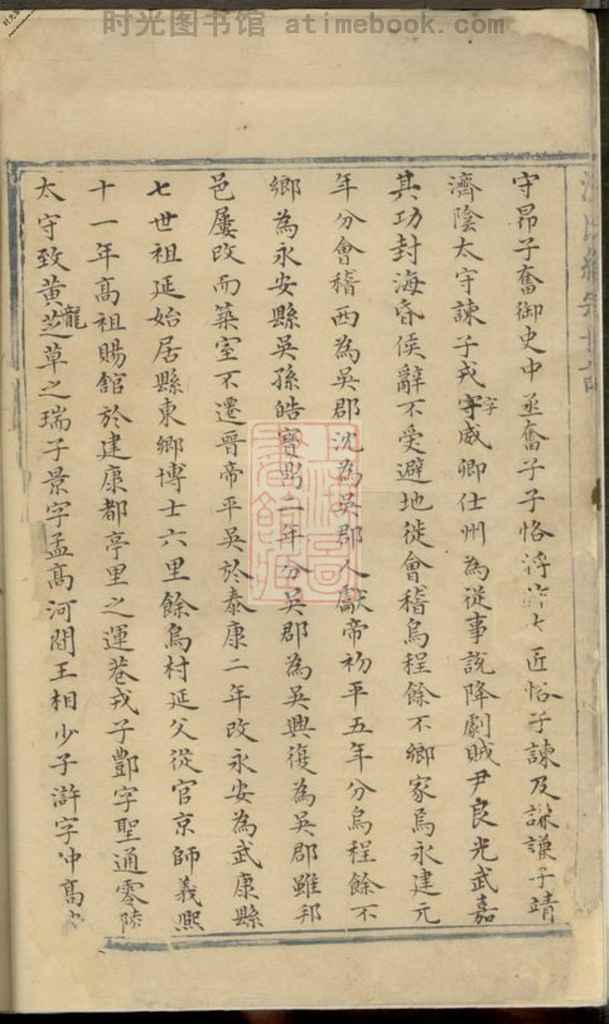 时光图书馆 atimebook.com
守昂子奮御史中丞奮子子恪將作大匠恪子諫及謙謙子靖
濟陰太守諫子戎字威卿仕州為從事說降劇賊尹良光武嘉
其功封海昏侯辭不受避地徙會稽烏程餘不鄉家焉永建元
年分會稽西為吳郡沈為吳郡人獻帝初平五年分烏程餘不
鄉為永安縣吳孫皓寶鼎二年分吳郡為吳興復為吳郡雖邦
邑屢改而築室不遷晉帝平吳於泰康二年改永安為武康縣
七世祖延始居縣東鄉博士六里餘烏村延父從官京師義熙
十一年高祖賜館於建康都亭里之運巷戎子酆字聖通零陵
太守致黃龍芝草之瑞子景字孟高河間王相少子滸字仲高